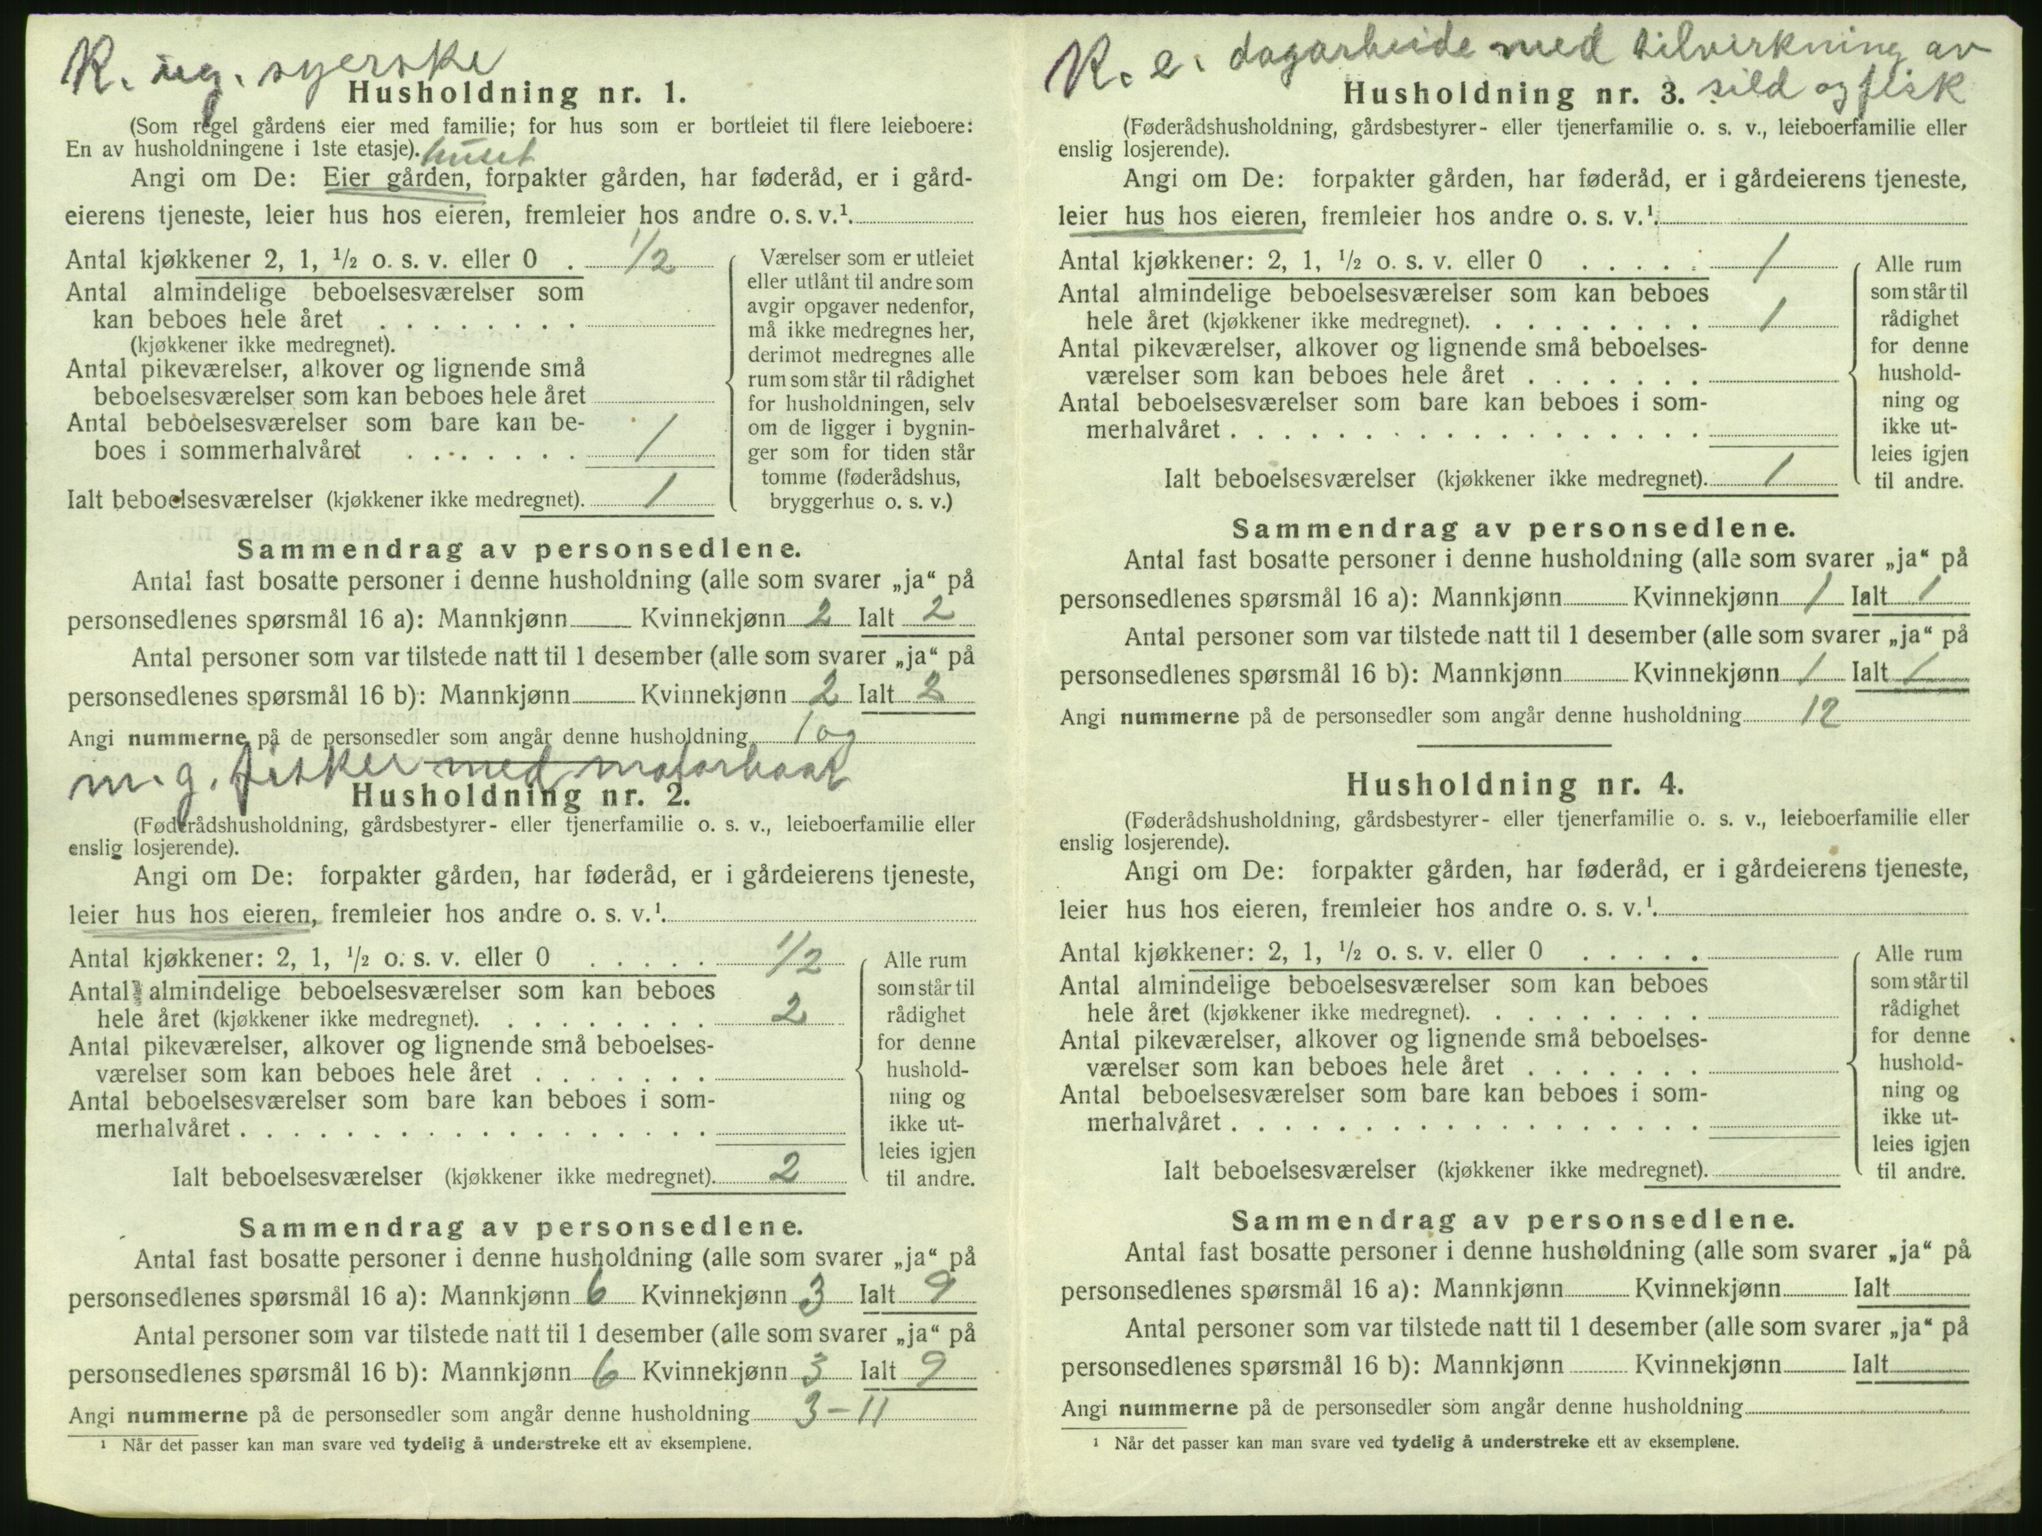 K. ug. syerske
Husholdning nr. 1.
(Som regel gårdens eier med familie; for hus som er bortleiet til flere leieboere:
En av husholdningene i 1ste etasje). huset
Angi om De: Eier gården, forpakter gården, har føderåd, er i gård-
eierens tjeneste, leier hus hos eieren, fremleier hos andre o. s. v.¹.
Antal kjøkkener 2, 1, ½ o. s. v. eller 0 . 1/2
Antal almindelige beboelsesværelser som
kan beboes hele året . . . . . . . .
(kjøkkener ikke medregnet).
Antal pikeværelser, alkover og lignende små
beboelsesværelser som kan beboes hele året
Antal beboelsesværelser som bare kan be-
boes i sommerhalvåret . . . . . . . 1
Ialt beboelsesværelser (kjøkkener ikke medregnet). 1
Værelser som er utleiet
eller utlånt til andre som
avgir opgaver nedenfor,
må ikke medregnes her,
derimot medregnes alle
rum som står til rådighet
for husholdningen, selv
om de ligger i bygnin-
ger som for tiden står
tomme (føderådshus,
bryggerhus o. s. v.)
Sammendrag av personsedlene.
Antal fast bosatte personer i denne husholdning (alle som svarer „ja“ på
personsedlenes spørsmål 16 a): Mannkjønn — Kvinnekjønn 2 Ialt 2
Antal personer som var tilstede natt til 1 desember (alle som svarer „ja“ på
personsedlenes spørsmål 16 b): Mannkjønn — Kvinnekjønn 2 Ialt 2
Angi nummerne på de personsedler som angår denne husholdning 1 og
m. g. fisker med motorbaat
Husholdning nr. 2.
(Føderådshusholdning, gårdsbestyrer- eller tjenerfamilie o. s. v., leieboerfamilie eller
enslig losjerende).
Angi om De: forpakter gården, har føderåd, er i gårdeierens tjeneste,
leier hus hos eieren, fremleier hos andre o. s. v.¹.
Antal kjøkkener: 2, 1, ½ o. s. v. eller 0 . . . . . 1/2
Antal almindelige beboelsesværelser som kan beboes
hele året (kjøkkener ikke medregnet). . . . . . . . . 2
Antal pikeværelser, alkover og lignende små beboelses-
værelser som kan beboes hele året . . . . . . .
Antal beboelsesværelser som bare kan beboes i som-
merhalvåret . . . . . . . . . . . . . . . . . .
Ialt beboelsesværelser (kjøkkener ikke medregnet). 2
Alle rum
som står til
rådighet
for denne
hushold-
ning og
ikke ut-
leies igjen
til andre.
Sammendrag av personsedlene.
Antal fast bosatte personer i denne husholdning (alle som svarer „ja“ på
personsedlenes spørsmål 16 a): Mannkjønn 6 Kvinnekjønn 3 Ialt 9
Antal personer som var tilstede natt til 1 desember (alle som svarer „ja“ på
personsedlenes spørsmål 16 b): Mannkjønn 6 Kvinnekjønn 3 Ialt 9
Angi nummerne på de personsedler som angår denne husholdning 3 – 11
¹ Når det passer kan man svare ved tydelig å understreke ett av eksemplene.
K. e. dagarbeide med tilvirkning av
sild og fisk
Husholdning nr. 3.
(Føderådshusholdning, gårdsbestyrer- eller tjenerfamilie o. s. v., leieboerfamilie eller
enslig losjerende).
Angi om De: forpakter gården, har føderåd, er i gårdeierens tjeneste,
leier hus hos eieren, fremleier hos andre o. s. v.¹.
Antal kjøkkener: 2, 1, ½ o. s. v. eller 0 . . . . . 1
Antal almindelige beboelsesværelser som kan beboes
hele året (kjøkkener ikke medregnet). . . . . . . . . 1
Antal pikeværelser, alkover og lignende små beboelses-
værelser som kan beboes hele året . . . . . . .
Antal beboelsesværelser som bare kan beboes i som-
merhalvåret . . . . . . . . . . . . . . . . . .
Ialt beboelsesværelser (kjøkkener ikke medregnet). 1
Alle rum
som står til
rådighet
for denne
hushold-
ning og
ikke ut-
leies igjen
til andre.
Sammendrag av personsedlene.
Antal fast bosatte personer i denne husholdning (alle som svarer „ja“ på
personsedlenes spørsmål 16 a): Mannkjønn Kvinnekjønn 1 Ialt 1
Antal personer som var tilstede natt til 1 desember (alle som svarer „ja“ på
personsedlenes spørsmål 16 b): Mannkjønn Kvinnekjønn 1 Ialt 1
Angi nummerne på de personsedler som angår denne husholdning 12
Husholdning nr. 4.
(Føderådshusholdning, gårdsbestyrer- eller tjenerfamilie o. s. v., leieboerfamilie eller
enslig losjerende).
Angi om De: forpakter gården, har føderåd, er i gårdeierens tjeneste,
leier hus hos eieren, fremleier hos andre o. s. v.¹.
Antal kjøkkener: 2, 1, ½ o. s. v. eller 0 . . . . .
Antal almindelige beboelsesværelser som kan beboes
hele året (kjøkkener ikke medregnet). . . . . . . . .
Antal pikeværelser, alkover og lignende små beboelses-
værelser som kan beboes hele året . . . . . . .
Antal beboelsesværelser som bare kan beboes i som-
merhalvåret . . . . . . . . . . . . . . . . . .
Ialt beboelsesværelser (kjøkkener ikke medregnet).
Alle rum
som står til
rådighet
for denne
hushold-
ning og
ikke ut-
leies igjen
til andre.
Sammendrag av personsedlene.
Antal fast bosatte personer i denne husholdning (alle som svarer „ja“ på
personsedlenes spørsmål 16 a): Mannkjønn Kvinnekjønn Ialt
Antal personer som var tilstede natt til 1 desember (alle som svarer „ja“ på
personsedlenes spørsmål 16 b): Mannkjønn Kvinnekjønn Ialt
Angi nummerne på de personsedler som angår denne husholdning
¹ Når det passer kan man svare ved tydelig å understreke ett av eksemplene.